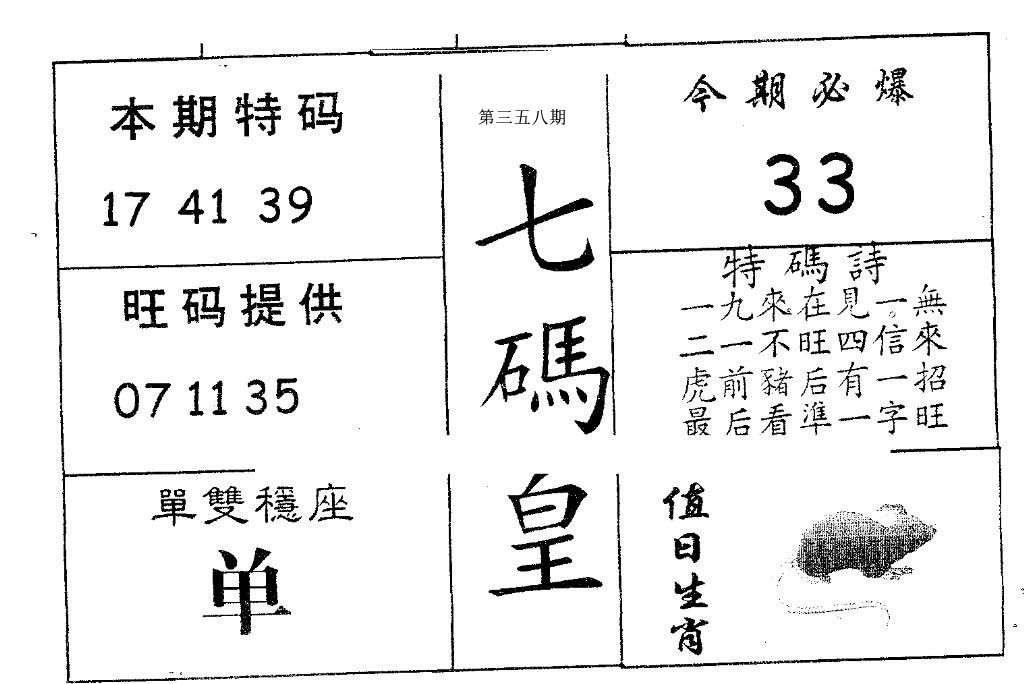 本期特码
17 41 39
旺码提供
07 11 35
單雙穩座
单
第三五八期
七
碼
皇
今期必爆
33
特碼詩
一九來在見一無
二一不旺四信來
虎前豬后有一招
最后看準一字旺
值
日
生
肖